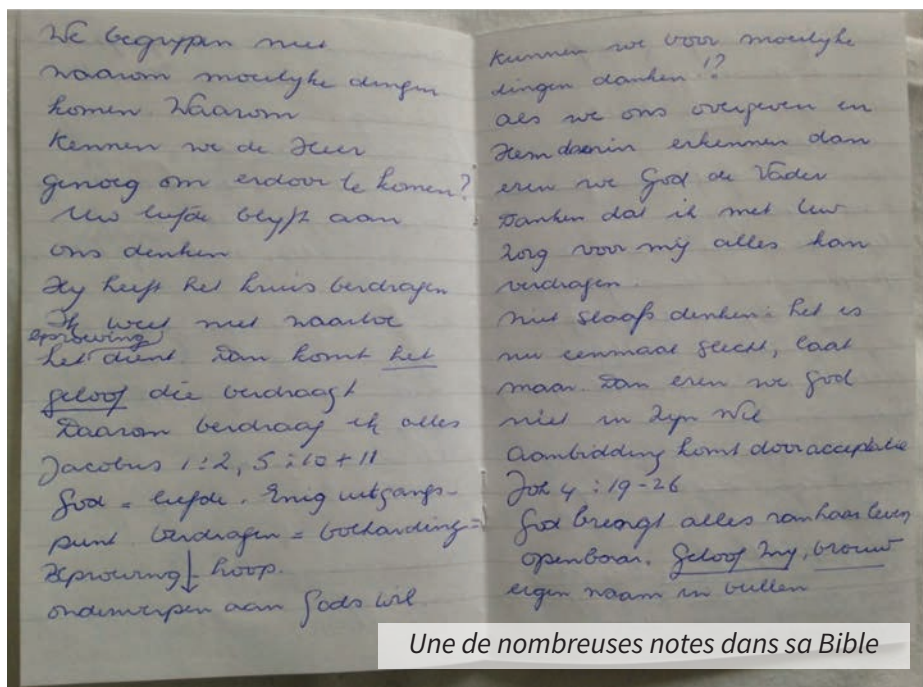 We begrypen niet
waarom moeilyke dingen
komen Waarom
Kennen we de Heer
genoeg om erdoor te komen?
Uw liefde blyft aan
ons denken
Hy heeft het kruis verdragen
Ik weet niet waartoe
beproeving
het dient. Dan komt het
geloof die verdraagt
Daarom verdraag ik alles
Jacobus 1:2, 5:10 + 11
God = liefde. Enig uitgangs-
punt. Verdragen = volharding =
beproeving hoop.
onderwerpen aan Gods wil
Kunnen we voor moeilyke
dingen danken!?
als we ons overgeven en
Hem daarin erkennen dan
eren we God de Vader
Danken dat ik met Uw
zorg voor my alles kan
verdragen.
Niet slaafs denken: het is
nu eenmaal slecht, laat
maar. Dan eren we God
niet in Zyn Wil
Aanbidding komt door acceptatie
Joh 4:19-26
God brengt alles van haar leven
openbaar. Geloof My, vrouw
eigen naam in vullen
Une de nombreuses notes dans sa Bible